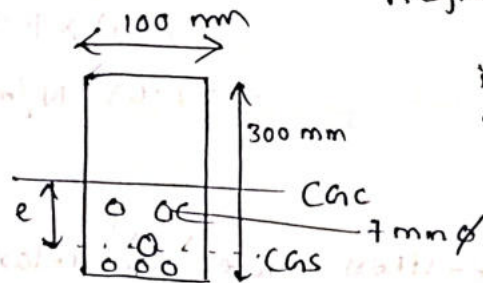 100 mm
300 mm
CGC
e
7 mm ϕ
CGS